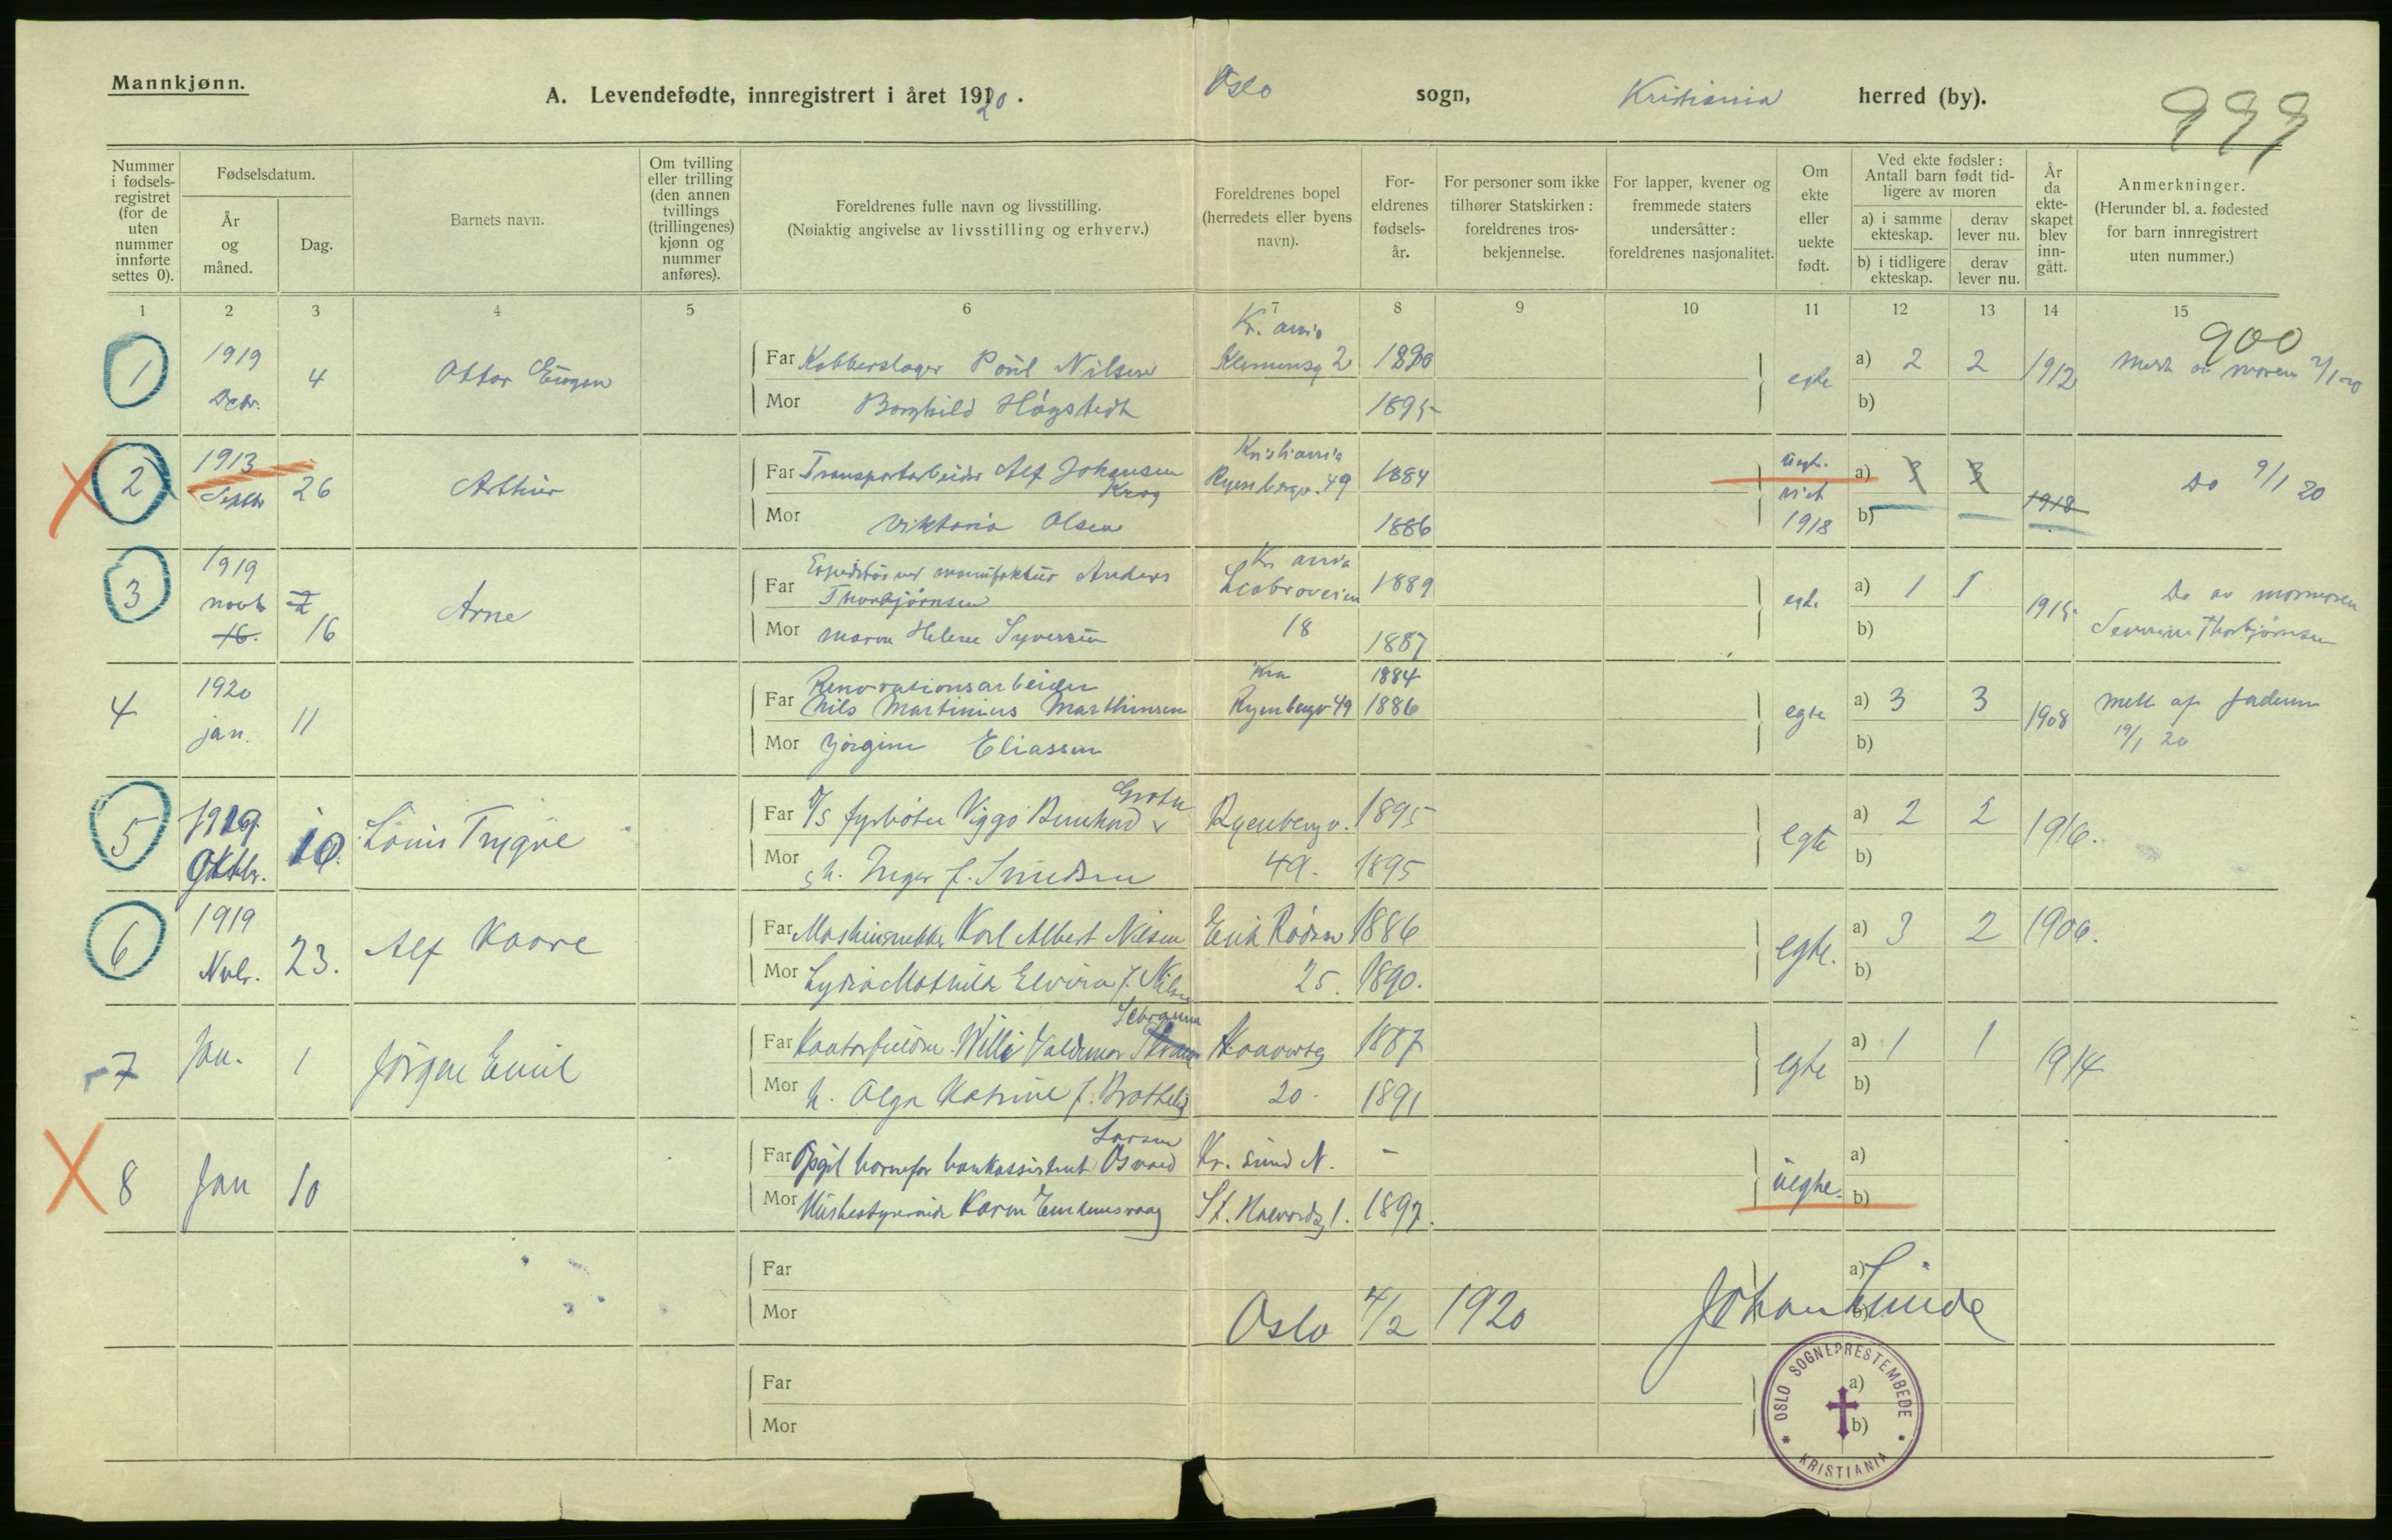 Mannkjønn.
A. Levendefødte, innregistrert i året 1920.
Oslo sogn, Kristiania herred (by).
999
Nummer i fødselsregistret (for de uten nummer innførte settes 0).
Fødselsdatum.
År og måned.
Dag.
Barnets navn.
Om tvilling eller trilling (den annen tvillings (trillingenes) kjønn og nummer anføres).
Foreldrenes fulle navn og livsstilling.
(Nøiaktig angivelse av livsstilling og erhverv.)
Foreldrenes bopel (herredets eller byens navn).
For-eldrenes fødsels-år.
For personer som ikke tilhører Statskirken: foreldrenes tros-bekjennelse.
For lapper, kvener og fremmede staters undersåtter: foreldrenes nasjonalitet.
Om ekte eller uekte født.
Ved ekte fødsler: Antall barn født tid-ligere av moren
a) i samme ekteskap.
derav lever nu.
b) i tidligere ekteskap.
derav lever nu.
År da ekte-skapet blev inn-gått.
Anmerkninger.
(Herunder bl. a. fødested for barn innregistrert uten nummer.)
1 2 3 4 5 6 7 8 9 10 11 12 13 14 15
900
1 1919 Decbr. 4 Ottar Eugen
Far Kobberslager Poul Nilsen Kr.ania Klemensg 2 1890 egte a) 2 2 1912 Meldt av moren 2/1 20
Mor Borghild Høgstedt 1895 b)
2 1913 Septbr 26 Arthur
Far Transportarbeider Alf Johansen Krog Kristiania Ryenbergv. 49 1884 uegte. vict 1918 a) 3 3 1918 Do 9/1 20
Mor Viktoria Olsen 1886 b)
3 1919 novbr 16. 16 Arne
Far Expeditør ved manufaktur Anders Thorbjørnsen Kr ania Leabroveien 18 1889 egte a) 1 1 1915 Do av mormoren
Mor Maren Helene Syversen 1887 b) Severine Thorbjørnsen
4 1920 jan. 11
Far Renovationsarbeider Nils Martinius Marthinsen Kra Ryenbergv 49 1884 1886 egte a) 3 3 1908 Meldt af faderen 19/1 20
Mor Jørgine Eliassen b)
5 1919. Oktbr. 10. Louis Trygve
Far D/S fyrbøter Viggo Bernhard Groth Ryenbergv. 1895 egte a) 2 2 1916.
Mor h. Inger f. Knudsen 49. 1895 b)
6 1919 Nvbr. 23. Alf Kaare
Far Maskinsnekker Karl Albert Nilsen 1886 egte. a) 3 2 1906.
Mor Lydia Mathilde Elvira f. Nilsen 25. 1890. b)
7 Jan. 1 Jørgen Emil
Far Kontorfuldm. Willi Valdemar 1887 egte a) 1 1 1914
Mor h. Olga Katrine f. 20. 1891 b)
8 Jan 10
Far Opgit barnefar bankassistent Osvald Larsen Kr. sund N. - uegte. a)
Mor Husbestyrerinde Karen St. Halvardsg 1. 1897. b)
Far a)
Mor b)
Oslo 4/2 1920 Johan Lunde
Far a)
Mor b)
OSLO SOGNEPRESTEMBEDE * KRISTIANIA